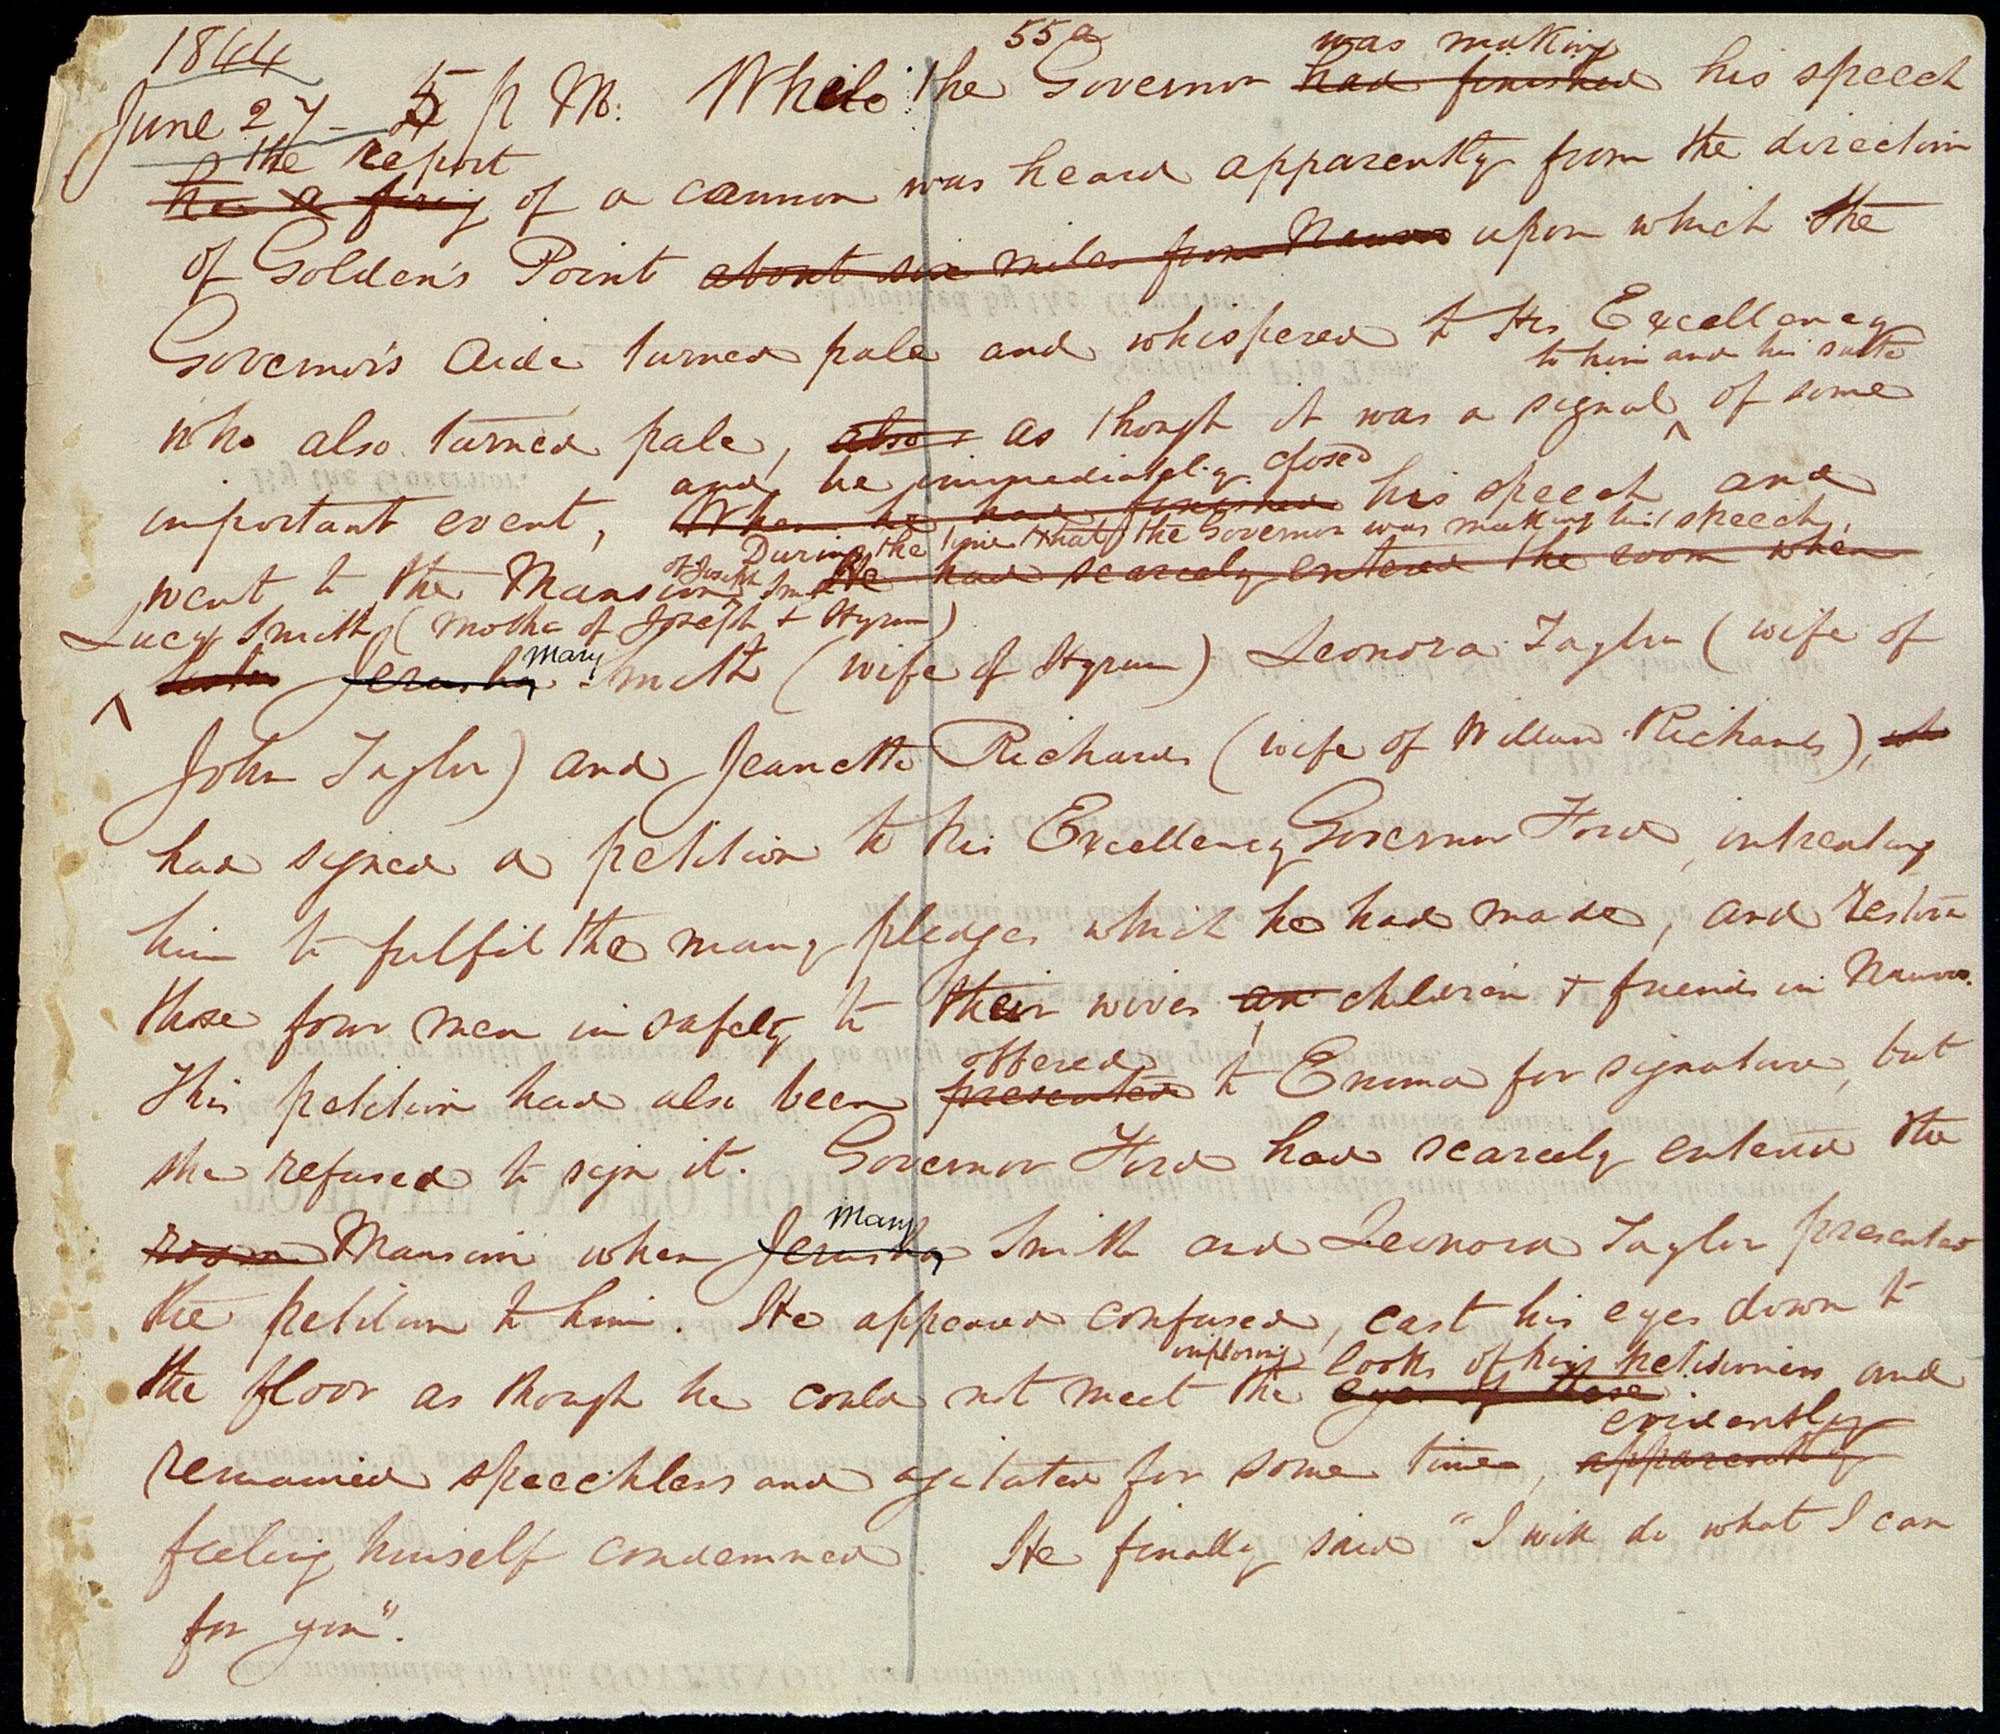 55a
1844 was making
June 27 - 5 p M. While the Governor had finished his speech
the report
firing of a cannon was heard apparently from the direction
of Golden's Point about six miles from Nauvoo upon which the
Governor's Aide turned pale and whispered to His Excellency
to him and his suite
who also turned pale, also as though it was a signal ^ of some
and he immediately closed
important event, When he had finished his speech and
During the time that the Governor was making his speech,
of Joseph Smith
went to the Mansion He had scarcely entered the room when
Lucy Smith (Mother of Joseph & Hyrum)
Mary
^ Jerusha Smith (wife of Hyrum) Leonora Taylor (wife of
John Taylor) and Jeanette Richards (wife of Willard Richards), who
had signed a petition to his Excellency Governor Ford, intreating
him to fulfil the many pledges which he had made, and restore
those four men in safety to their wives an children & friends in Nauvoo.
offered
This petition had also been presented to Emma for signature, but
she refused to sign it. Governor Ford had scarcely entered the
Mary
room Mansion when Jerusha Smith and Leonora Taylor presented
the petition to him. He appeared confused, cast his eyes down to
imploring looks of his petitioners
the floor as though he could not meet the eyes of those and
evidently
remained speechless and agitated for some time, apparently
feeling himself condemned. He finally said "I will do what I can
for you".